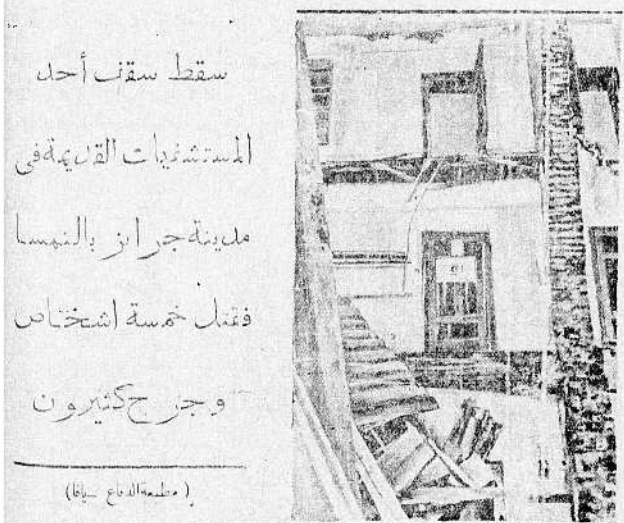 سقط سقف أحد
المستشفيات القديمة في
مدينة جراز بالنمسا
فقتل خمسة اشخاص
وجرح كثيرون
(مطبعة الدفاع بيافا)